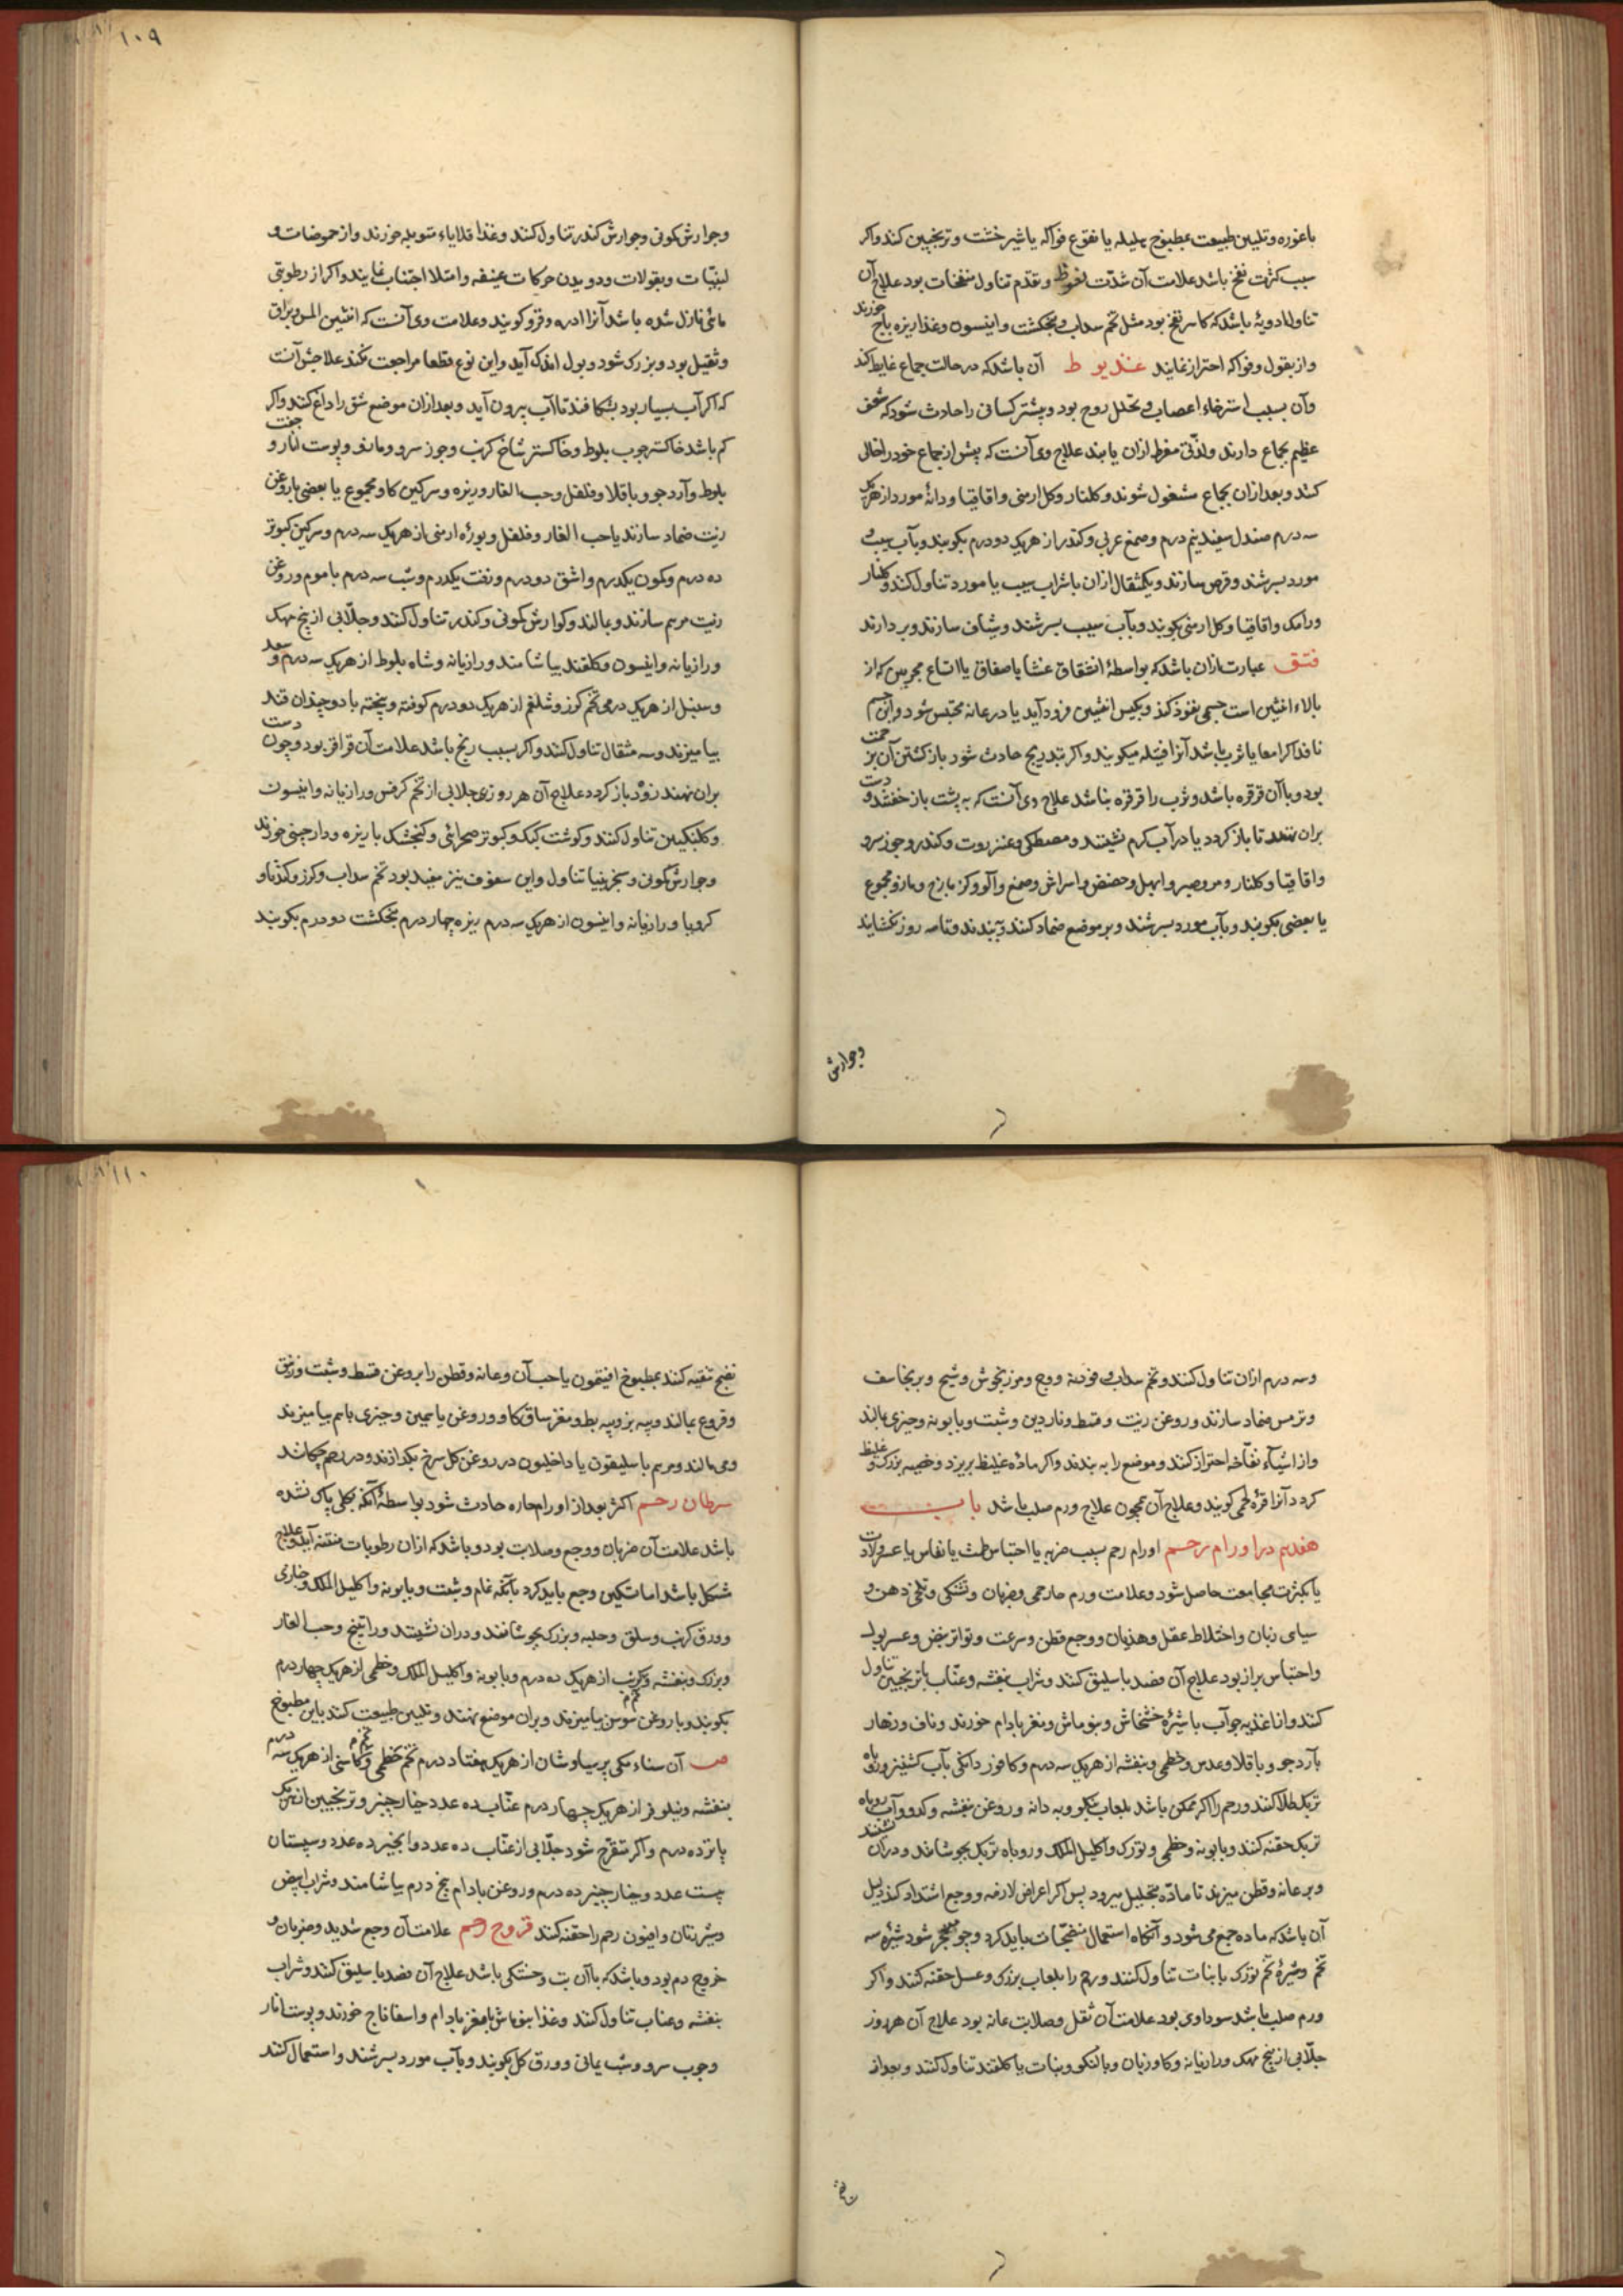 باغوره و تلیین طبیعت بمطبوخ هلیله یا نقوع فواکه یا شیرخشت و ترنجبین کند و اکر
سبب کثرت نفخ باشد علامت آن شدت نعوظ و تقدم تناول منفخات بود علاج آن
تناول ادویه باشد که کاسر نفخ بود مثل تخم سداب و پنجنکشت و انیسون و غذا زیره باج خورند
و از بقول و فواکه احتراز نمایند عذیوط آن باشد که در حالت جماع غایط کند
و آن بسبب استرخاء اعصاب و تحلل روح بود و بیشتر کسانی را حادث شود که شعف
عظیم بجماع دارند و لذتی مفرط ازان یابند علاج وی آنست که پیش از جماع خود را خالی
کنند و بعد ازان بجماع مشغول شوند و کلنار و کل ارمنی و اقاقیا و دانه مورد از هر یک
سه درم صندل سفید نیم درم و صمغ عربی و کندر از هر یک دو درم بکوبند و بآب سیب و
مورد بسرشند و قرص سازند و یکمثقال ازان با شراب سیب یا مورد تناول کنند و کلنار
و رامک و اقاقیا و کل ارمنی بکوبند و بآب سیب بسرشند و شیاف سازند و بردارند
فتق عبارت ازان باشد که بواسطهٔ انشقاق غشا یا صفاق یا اتساع مجریین که از
بالاء انثیین است جسمی نفوذ کند و بکیس انثیین فرود آید یا در عانه محتبس شود و این جسم
نافذ اکر امعا یا ثرب باشد آنرا فتیله میکویند و اکر بتدریج حادث شود باز کشتن آن بز حمت
بود و با آن قرقره باشد و ثرب را قرقره نباشد علاج وی آنست که به پشت باز خفتند و دست
بران نهند تا باز کردد یا در آب کرم نشینند و مصطکی و عنزروت و کندر و جوز سرو
و اقاقیا و کلنار و مر و صبر و ابهل و حضض و اسراش و صمغ و آلو و کزمازج و مازو مجموع
یا بعضی بکوبند و بآب مورد بسرشند و بر موضع ضماد کنند و ببندند و تا سه روز نکشایند
و جوارش
۱۰۹
و جوارش کمونی و جوارش کندر تناول کنند و غذا قلایاء متوبله خورند و از حموضات و
لبنیات و بقولات و دویدن حرکات عنیفه و امتلا اجتناب نمایند و اکر از رطوبتی
مائی نازل شده باشد آنرا ادره و قرو کویند و علامت وی آنست که انثیین املس و براق
و ثقیل بود و بزرک شود و بول اندک آید و این نوع قطعا مراجعت نکند علاجش آنست
که اکر آب بسیار بود بشکافند تا آب بیرون آید و بعد ازان موضع شق را داغ کنند و اکر
کم باشد خاکستر چوب بلوط و خاکستر شاخ کرنب و جوز سرو و مازو و پوست انار و جفت
بلوط و آرد جو و باقلا و فلفل و حب الغار و زیره و سرکین کاو مجموع یا بعضی با روغن
زیت ضماد سازند یا حب الغار و فلفل و بوره ارمنی از هر یک سه درم و سرکین کبوتر
ده درم و کمون یکدرم و اشق دو درم و زفت یکدرم و شب سه درم با موم و روغن
زیت مرهم سازند و بمالند و کوارش کمونی و کندر تناول کنند و جلابی از بیخ مهک
و رازیانه و انیسون و کلقند بیاشامند و رازیانه و شاه بلوط از هر یک سه درم و سعد
و سنبل از هر یک درمی تخم کرز و شلغم از هر یک دو درم کوفته و بیخته با دو چندان قند
بیامیزند و سه مثقال تناول کنند و اکر بسبب ریح باشد علامت آن قراقر بود و چون دست
بران نهند زود باز کردد علاج آن هر روزی جلابی از تخم کرفس و رازیانه و انیسون
و کلنکبین تناول کنند و کوشت کبک و کبوتر صحرائی و کنجشک با زیره و دارچینی خورند
و جوارش کمونی و سجزینیا تناول و این سفوف نیز مفید بود تخم سداب و کرز و کندنا و
کرویا و رازیانه و انیسون از هر یک سه درم زیره چهار درم پنجنکشت دو درم بکوبند
و سه درم ازان تناول کنند و تخم سداب و فودنه و وج و مرزنجوش و شیح و برنجاسف
و ترمس ضماد سازند و روغن زیت و قسط و ناردین و شبت و بابونه و جیزی بمالند
و از اشیاء نفاخه احتراز کنند و موضع را به بندند و اکر ماده غلیظ بریزد و خصیه بزرک و غلیظ
کردد آنرا قرهٔ لحمی کویند و علاج آن همچون علاج ورم صلب باشد باب
هفدهم در اورام رحم اورام رحم بسبب ضربه یا احتباس طمث یا نفاس یا عسر ولادت
یا بکثرت مجامعت حاصل شود و علامت ورم حار حمی و ضربان و تشنکی و تلخی دهن و
سیاهی زبان و اختلاط عقل و هذیان و وجع قطن و سرعت و تواتر نبض و عسر بول
و احتباس براز بود علاج آن فصد باسلیق کنند و شراب بنفشه و عناب با ترنجبین تناول
کنند و از اغذیه جو آب با شیرهٔ خشخاش و بنوماش و مغز بادام خورند و ناف و زهار
بآرد جو و باقلا و عدس و خطمی و بنفشه از هر یک سه درم و کافور دانکی بآب کشنیز و روباه
تربک طلا کنند و رحم را اکر ممکن باشد بلعاب بنکو و به دانه و روغن بنفشه و کدو و آب روباه
تربک حقنه کنند و بابونه و خطمی و تورک و اکلیل الملک و روباه تربک بجوشانند و دران نشینند
و بر عانه و قطن میزند تا ماده بتحلیل میرود پس اکر اعراض لازمه و وجع اشتداد کند دلیل
آن باشد که ماده جمع می شود و آنکاه استعمال منضجات باید کرد و چو منفجر شود شیرهٔ سه
تخم و شیرهٔ تخم تورک با نبات تناول کنند و رحم را بلعاب بزرک و عسل حقنه کنند و اکر
ورم صلب باشد سوداوی بود علامت آن ثقل و صلابت عانه بود علاج آن هر روز
جلابی از بیخ مهک و رازیانه و کاوزبان و بالنکو و نبات یا کلقند تناول کنند و بعد از
۱۱۰
نضج تنقیه کنند بمطبوخ افتیمون یا حب آن و عانه و قطن را بروغن قسط و شبت و زنبق
و قروع بمالند و پیه بز و پیه بط و مغز ساق کاو و روغن یاسمین و جیزی باهم بیامیزند
و می مالند و مرهم باسلیقون یا داخلیون در روغن کل سرخ بکدازند و در رحم چکانند
سرطان رحم اکثر بعد از اورام حاره حادث شود بواسطهٔ آنکه بکلی پاک نشده
باشد علامت آن ضربان و وجع و صلابت بود و باشد که ازان رطوبات منتنه آید و علاج
مشکل باشد اما تسکین وجع باید کرد بآنکه نمام و شبت و بابونه و اکلیل الملک و خبازی
و ورق کرنب و سلق و حلبه و بزرک بجوشانند و دران نشینند و راتینج و حب الغار
و بزرک و بنفشه و کرنب از هر یک ده درم و بابونه و اکلیل الملک و خطمی از هر یک چهار درم
بکوبند و با روغن سوسن بیامیزند و بران موضع نهند و تلیین طبیعت کنند باین مطبوخ
ص آن سناء مکی پرسیاوشان از هر یک هفتاد درم تخم خطمی و کاسنی از هر یک سه درم
بنفشه و نیلوفر از هر یک چهار درم عناب ده عدد خیار چنبر و ترنجبین از هر یک
پانزده درم و اکر متقرح شود جلابی از عناب ده عدد و انجیر ده عدد و سپستان
بیست عدد و خیار چنبر ده درم و روغن بادام پنج درم بیاشامند و شراب ابیض
و شیر زنان و افیون رحم را حقنه کنند قروح رحم علامت آن وجع شدید و ضربان و
خروج دم بود و باشد که با آن تب و خشکی باشد علاج آن فصد باسلیق کنند و شراب
بنفشه و عناب تناول کنند و غذا بنوماش با مغز بادام و اسفاناخ خورند و پوست انار
و جوب سرو و شب یمانی و ورق کل بکوبند و بآب مورد بسرشند و استعمال کنند